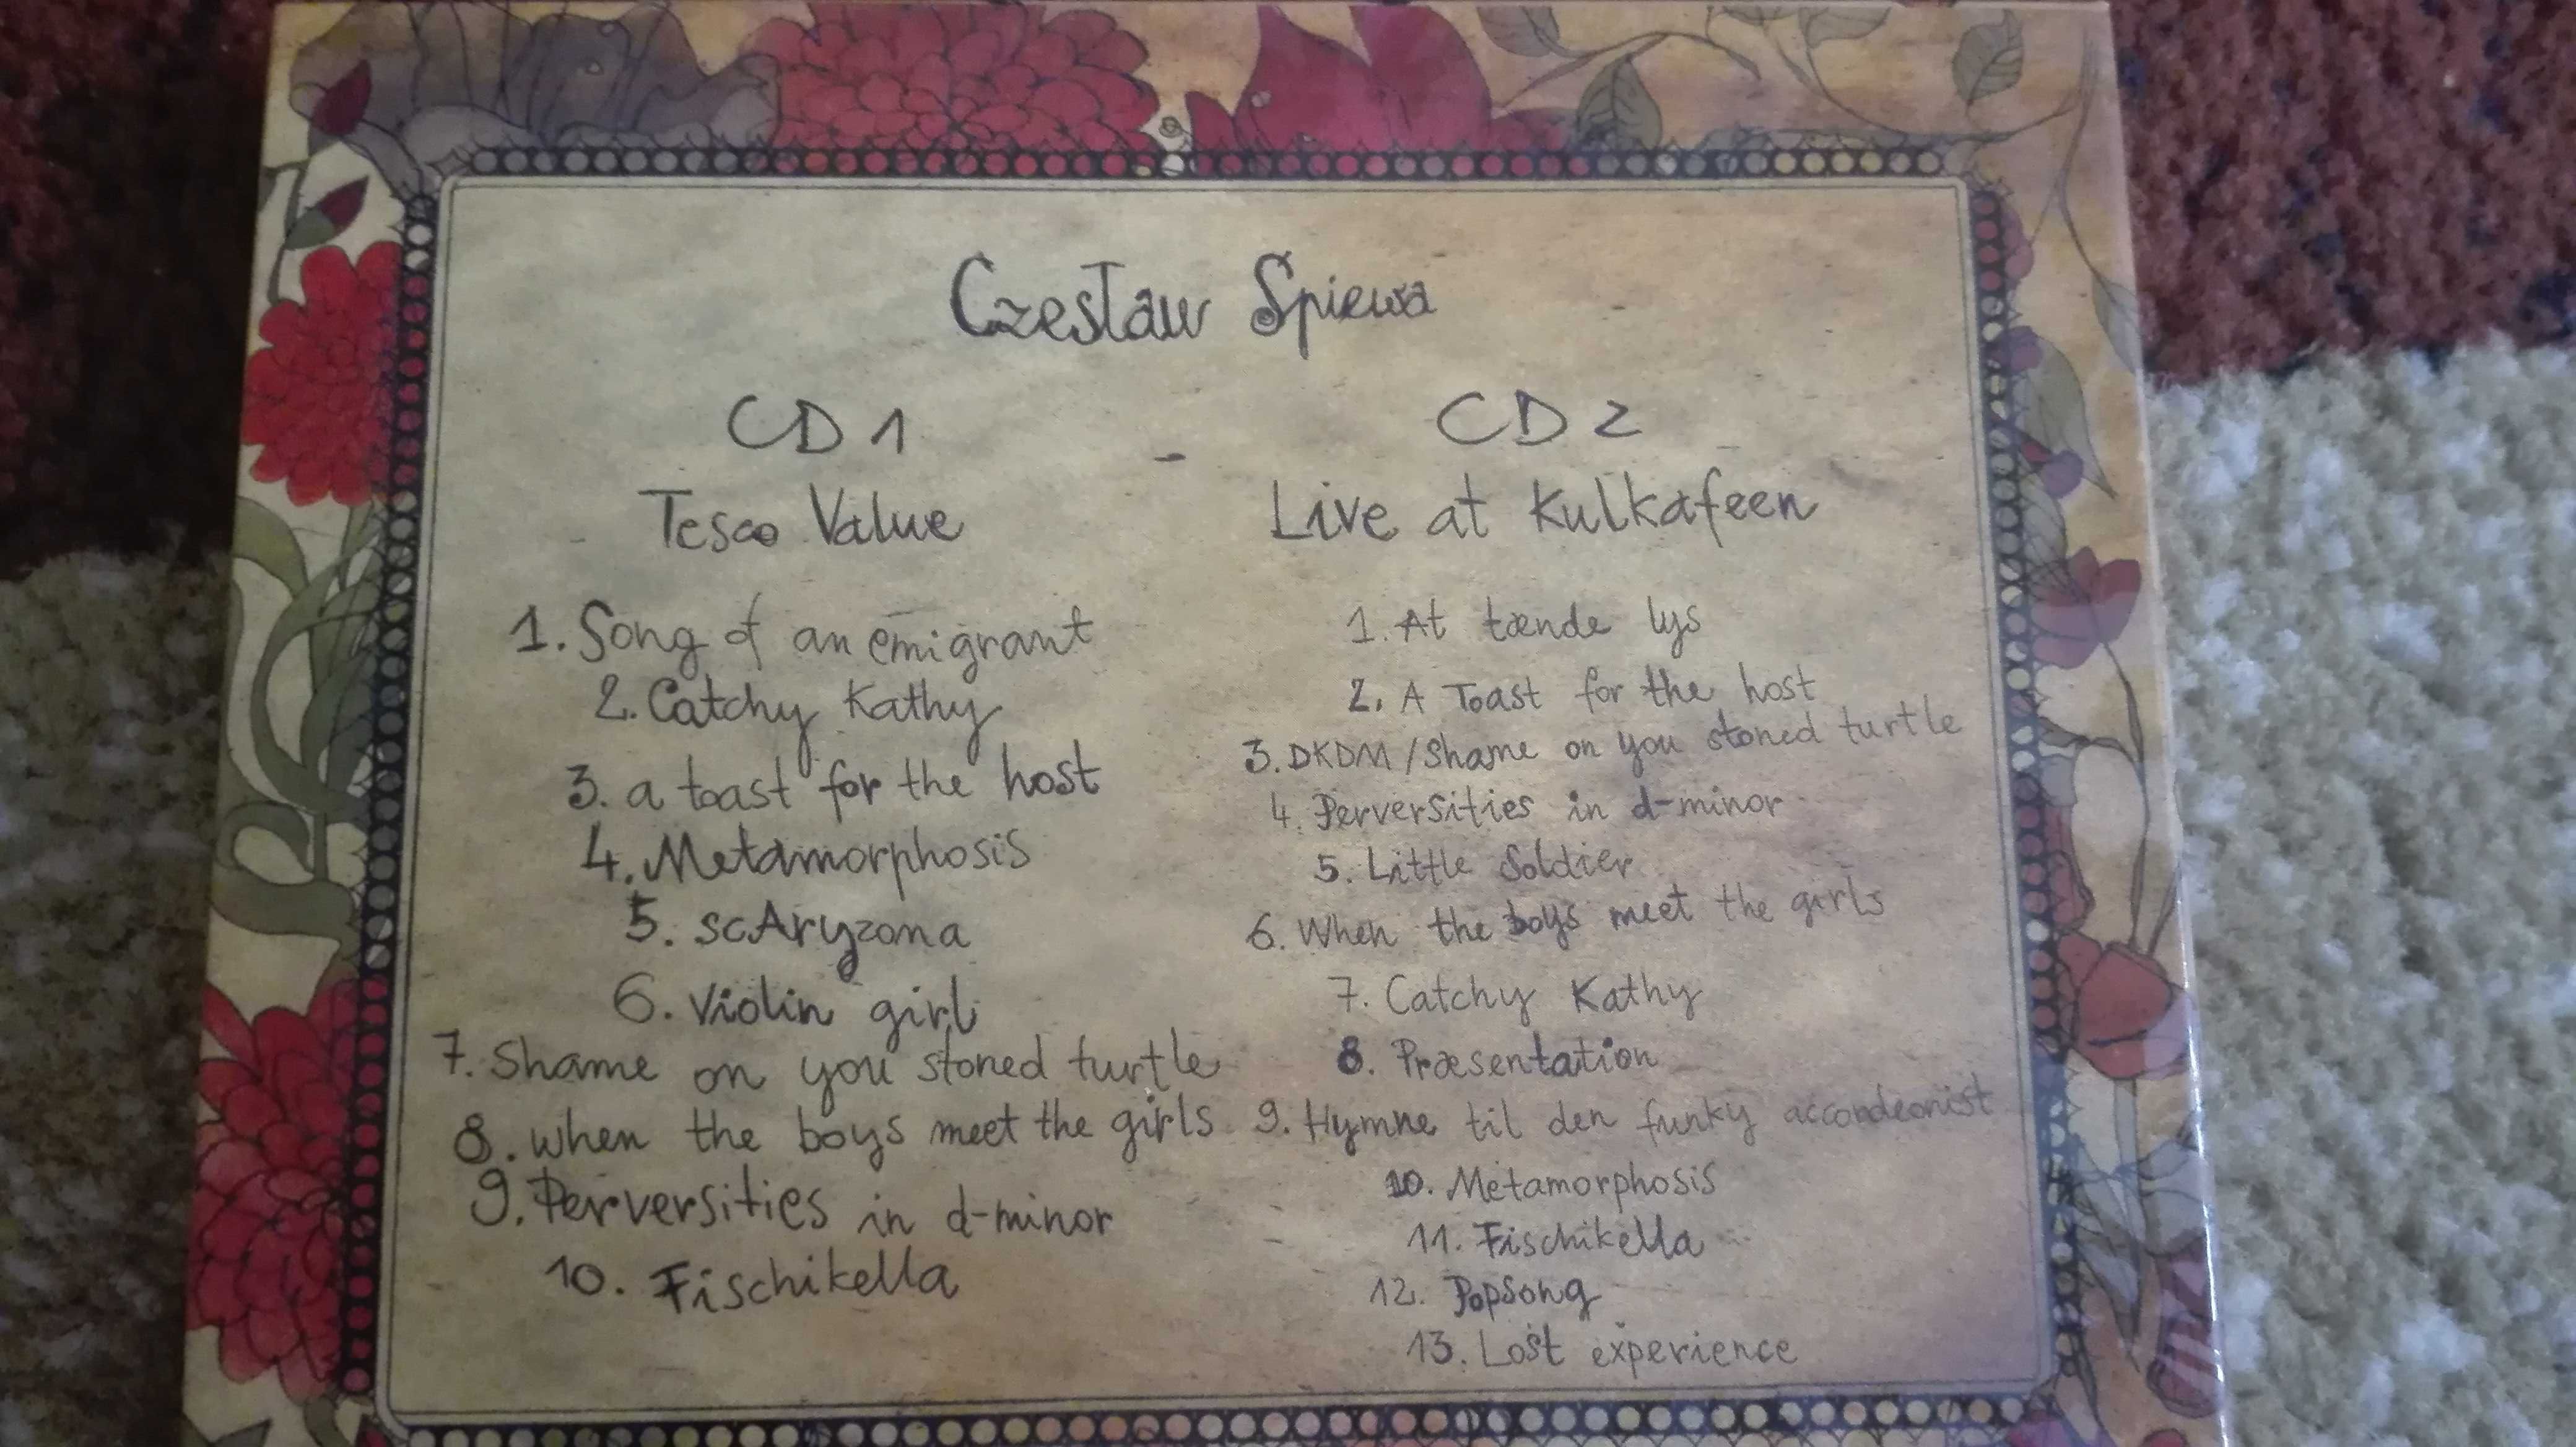 Czesław Śpiewa
CD 1
Tesco Value
1. Song of an emigrant
2. Catchy Kathy
3. a toast for the host
4. Metamorphosis
5. scAryzona
6. Violin girl
7. Shame on you stoned turtle
8. when the boys meet the girls
9. Perversities in d-minor
10. Fischikella
CD 2
Live at Kulkafeen
1. At tænde lys
2. A Toast for the host
3. DKDM / Shame on you stoned turtle
4. Perversities in d-minor
5. Little Soldier
6. When the boys meet the girls
7. Catchy Kathy
8. Præsentation
9. Hymne til den funky accordeonist
10. Metamorphosis
11. Fischikella
12. Popsong
13. Lost experience